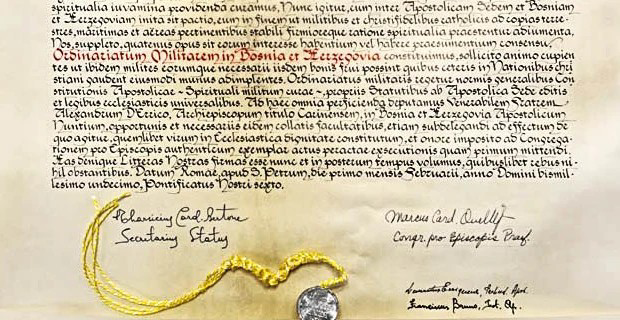 spiritualia iuvamina providenda curamus. Nunc igitur, cum inter Apostolicam Sedem et Bosniam
et Herzegoviam inita sit pactio, eum in finem ut militibus et christifidelibus catholicis ad copias terre-
stres, maritimas et aëreas pertinentibus stabili firmioreque ratione spiritualia praestentur adiumenta,
Nos, suppleto, quatenus opus sit eorum interesse habentium vel habere praesumentium consensu,
Ordinariatum Militarem in Bosnia et Herzegovia constituimus, sollicito animo cupien
tes ut ibidem milites eorumque necessarii iisdem bonis frui possint quibus ceteris in Nationibus chri
stiani gaudent eiusmodi munus adimplentes. Ordinariatus militaris regetur normis generalibus Con
stitutionis Apostolicae - Spirituali militum curae -, propriis Statutibus ab Apostolica Sede editis
et legibus ecclesiasticis universalibus. Ad haec omnia perficienda deputamus Venerabilem Fratrem
Alexandrum D'Errico, Archiepiscopum titulo Carinensem, in Bosnia et Herzegovia Apostolicum
Nuntium, opportunis et necessariis eidem collatis facultatibus, etiam subdelegandi ad effectum de
quo agitur, quemlibet virum in Ecclesiastica dignitate constitutum, et onere imposito ad Congrega-
tionem pro Episcopis authenticum exemplar actus peractae exsecutionis quam primum mittendi.
Has denique Litteras Nostras firmas esse nunc et in posterum tempus volumus, quibuslibet rebus ni-
hil obstantibus. Datum Romae, apud S. Petrum, die primo mensis Februarii, anno Domini bismil
lesimo undecimo, Pontificatus Nostri sexto.
Card. Bertone
Secretarius Status
Marcus Card. Ouellet
Congr. pro Episcopis Praef.
Franciscus Bruno,